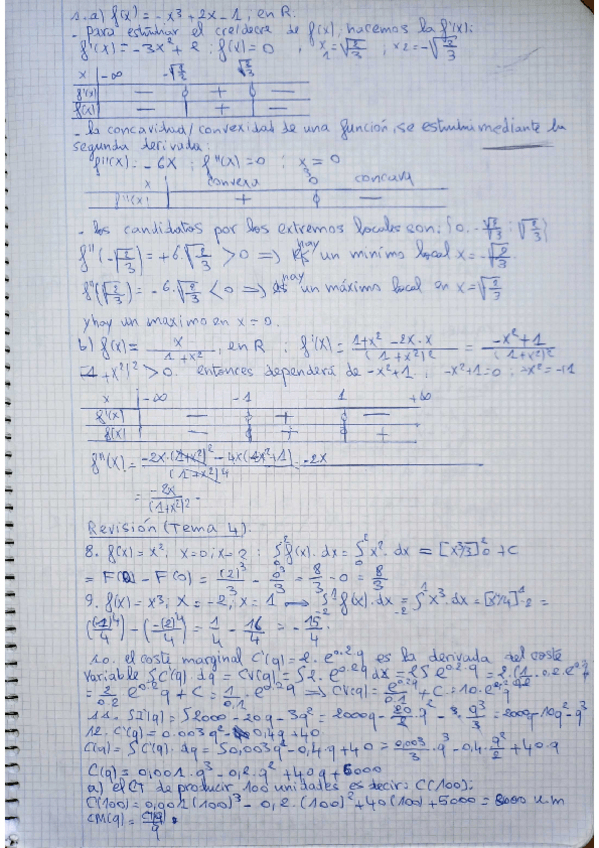 1. a) f(x) = -x³ + 2x - 1, en R.
- Para estudiar el crec/decre de f(x), hacemos la f'(x):
f'(x) = -3x² + 2 ; f'(x) = 0 , x1 = √2/3 ; x2 = -√2/3
x -∞ -√2/3 √2/3
f'(x) — ϕ + ϕ —
f(x) — ϕ + ϕ —
- la concavidad/convexidad de una función, se estudia mediante la
segunda derivada:
f''(x) = -6x ; f''(x) = 0 ; x = 0
x convexa 0 concava
f''(x) + ϕ —
- los candidatos por los extremos locales son: {0, -√2/3 ; √2/3}
f''(-√2/3) = +6.√2/3 > 0 => hay un mínimo local x = -√2/3.
f''(√2/3) = -6.√2/3 < 0 => hay un máximo local en x = √2/3
y hay un maximo en x = 0.
b) f(x) = x/1+x², en R ; f'(x) = 1+x²-2x.x/(1+x²)² = -x²+1/(1+x²)²
(1+x²)² > 0. entonces dependerá de -x²+1 ; -x²+1=0 ; -x² = -1
x -∞ -1 1 +∞
f'(x) — ϕ + ϕ —
f(x) — ϕ + ϕ +
f''(x) = -2x.(1+x²)² - 4x( +1)/(1+x²)4 -2x
= -2x/(1+x²)² .
Revisión (Tema 4).
8. f(x) = x², x=0; x=2 ; ∫₀² f(x). dx = ∫₀² x². dx = [x³/3]²₀ + C
= F(2) - F(0) = (2)³/3 - 0³/3 = 8/3 - 0 = 8/3
9. f(x) = x³, x = -2, x = 1 → ∫₋₂¹ f(x). dx = ∫₋₂¹ x³. dx = [x⁴/4]¹₋₂ =
((1)⁴/4) - (-(2)⁴/4) = 1/4 - 16/4 = -15/4.
10. el coste marginal C'(q) = 2. e^0.2.q es la derivada del coste
variable ∫C'(q) dq = CV(q) = ∫2. e^0.2q dx = 2∫e^0.2.q = 2.(1 . 0.2. e
= 2/0.2 e^0.2q + C = 1/0.1 . e^0.2q => CV(q) = e^0.2q/0.1 + C = 10. e^0.2q
11. ∫I'(q) = ∫2000 - 20q - 3q² = 2000q - 20/2 . q² - 3. q³/3 = 2000q - 10q² - q³
12. C'(q) = 0.003q² - 0,4q + 40
C(q) = ∫C'(q). dq = ∫0,003q² - 0,4.q + 40 = 0.003/3 . q³ - 0,4. q²/2 + 40.q
C(q) = 0,001. q³ - 0,2. q² + 40q + 5000
a) el CT de producir 100 unidades es decir: C(100):
C(100) = 0,001 (100)³ - 0,2. (100)² + 40(100) + 5000 = 8000 u.m
CM(q) = C(q)/q .